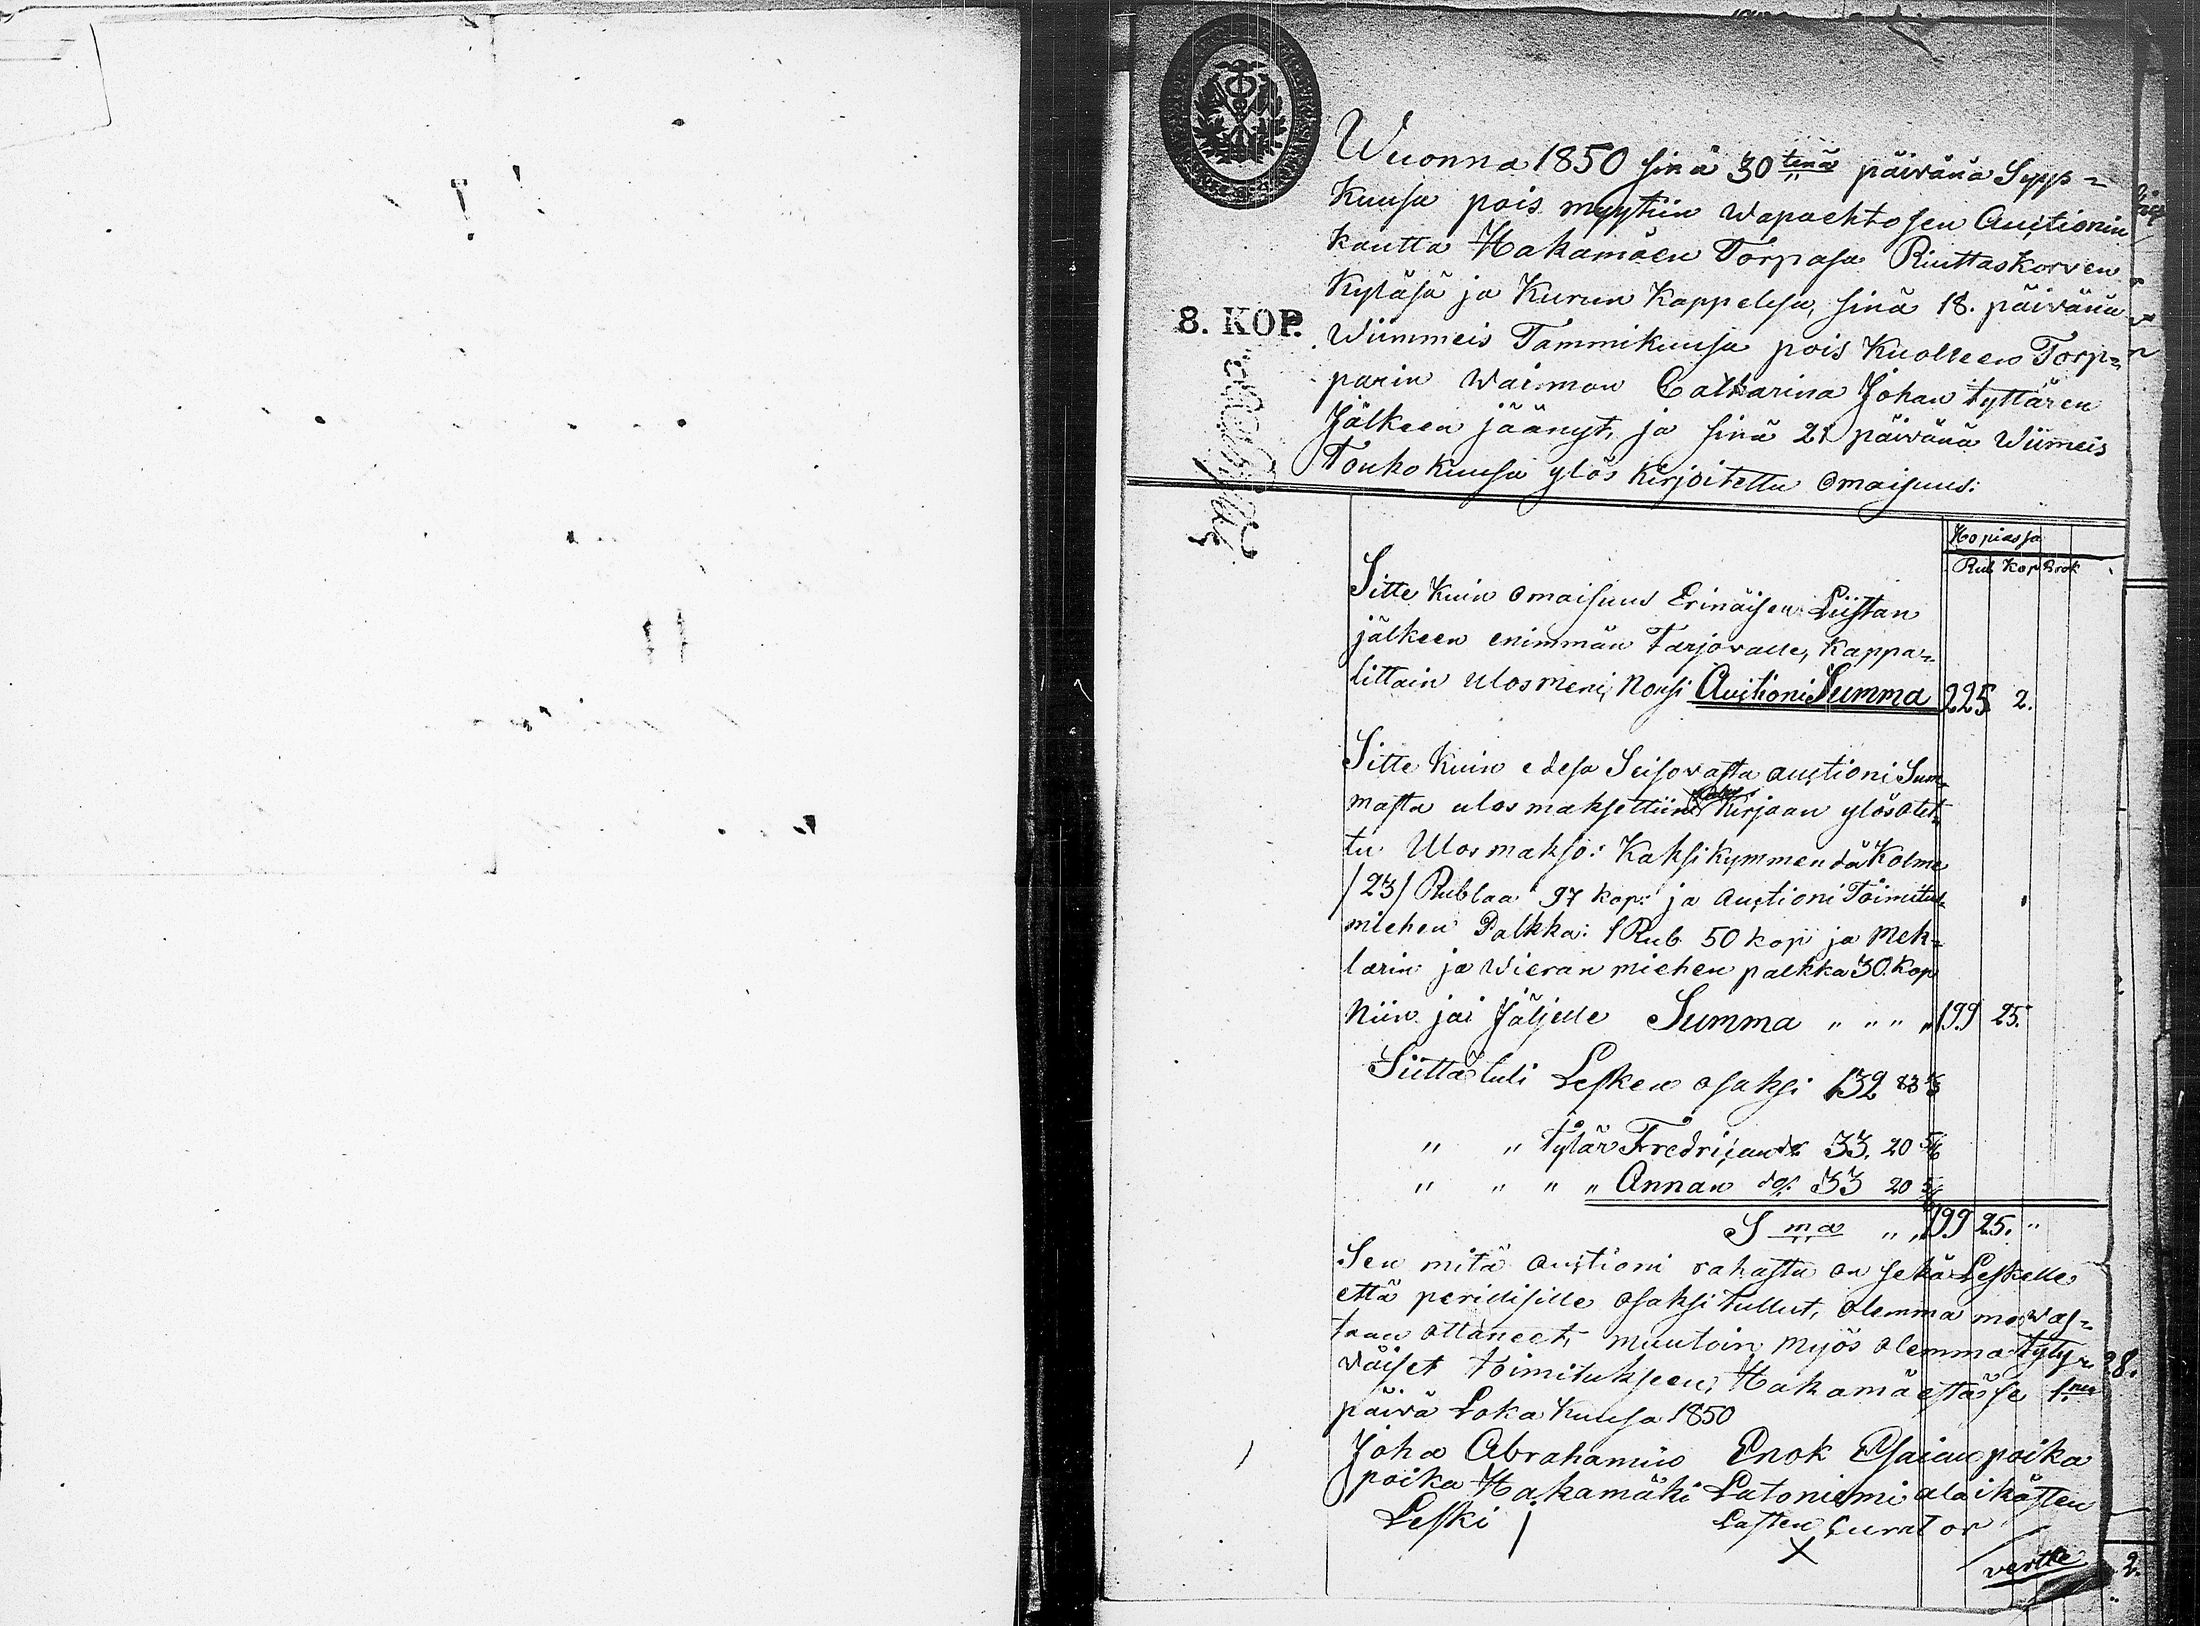 Wuonna 1850 sinä 30tenä päivänä Syys=
kuusa pois myytiin wapaehtosen Auctionin
kautta Hakamäen Torpasa Riuttaskorven
Kyläsä ja Kurun Kappelisa, sinä 18. päivänä
8. KOP.
Wiimmeis Tammikuusa pois Kuolleen Torp=
parin waimon Catharina Johan tyttären
Jälkeen jäänyt, ja sinä 21 päivänä Wiimeis
Toukokuusa ylös Kirjoitettu Omaisuus:
Hopiassa
Rub Kop Brok
Sitte Kuin Omaisuus Erinäisen Liistan
jälkeen enimmän Tarjovalle, Kappa=
littain ulosmeni, Nousi Auctioni Summa 225 2.
Sitte Kuin edesä Seisovasta auctioni Sum=
masta ulosmaksettiin Kirjaan ylösotet=
tu Ulosmakso: Kaksikymmendä Kolme
/23/ Rublaa 97 kop: ja Auctioni Toimitus
miehen Palkka: 1 Rub. 50 kop ja Mek=
larin ja Wieran miehen palkka 30. Kop
Niin jäi Jäljelle Summa " " " " 199 25.
Siittä tuli Lesken osaksi 132 83 2/3
" " Tytär Fredrican do 33. 20 5/6
" " " " Annan do: 33 20 5/6
S ma " " 199 25. "
Sen mitä auctioni rahasta on sekä Leskelle
että perillisille Osaksi tullut, olemma me was=
taan ottaneet, muutoin myös olemma tyty=
wäiset toimitukseen; Hakamäestä se 1nen
28.
päivä Lokakuusa 1850
Joha Abrahamin Enok Esaian poika
poika Hakamäki Latoniemi alaikästen
Leski Lasten Curator
X
vertte
2.